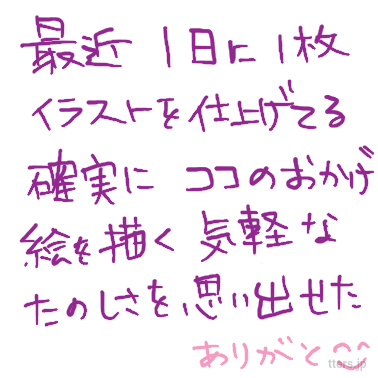 最近 1日に1枚
イラストを仕上げてる
確実に ココのおかげ
絵を描く 気軽な
たのしさを思い出せた
ありがと^^
tters.jp